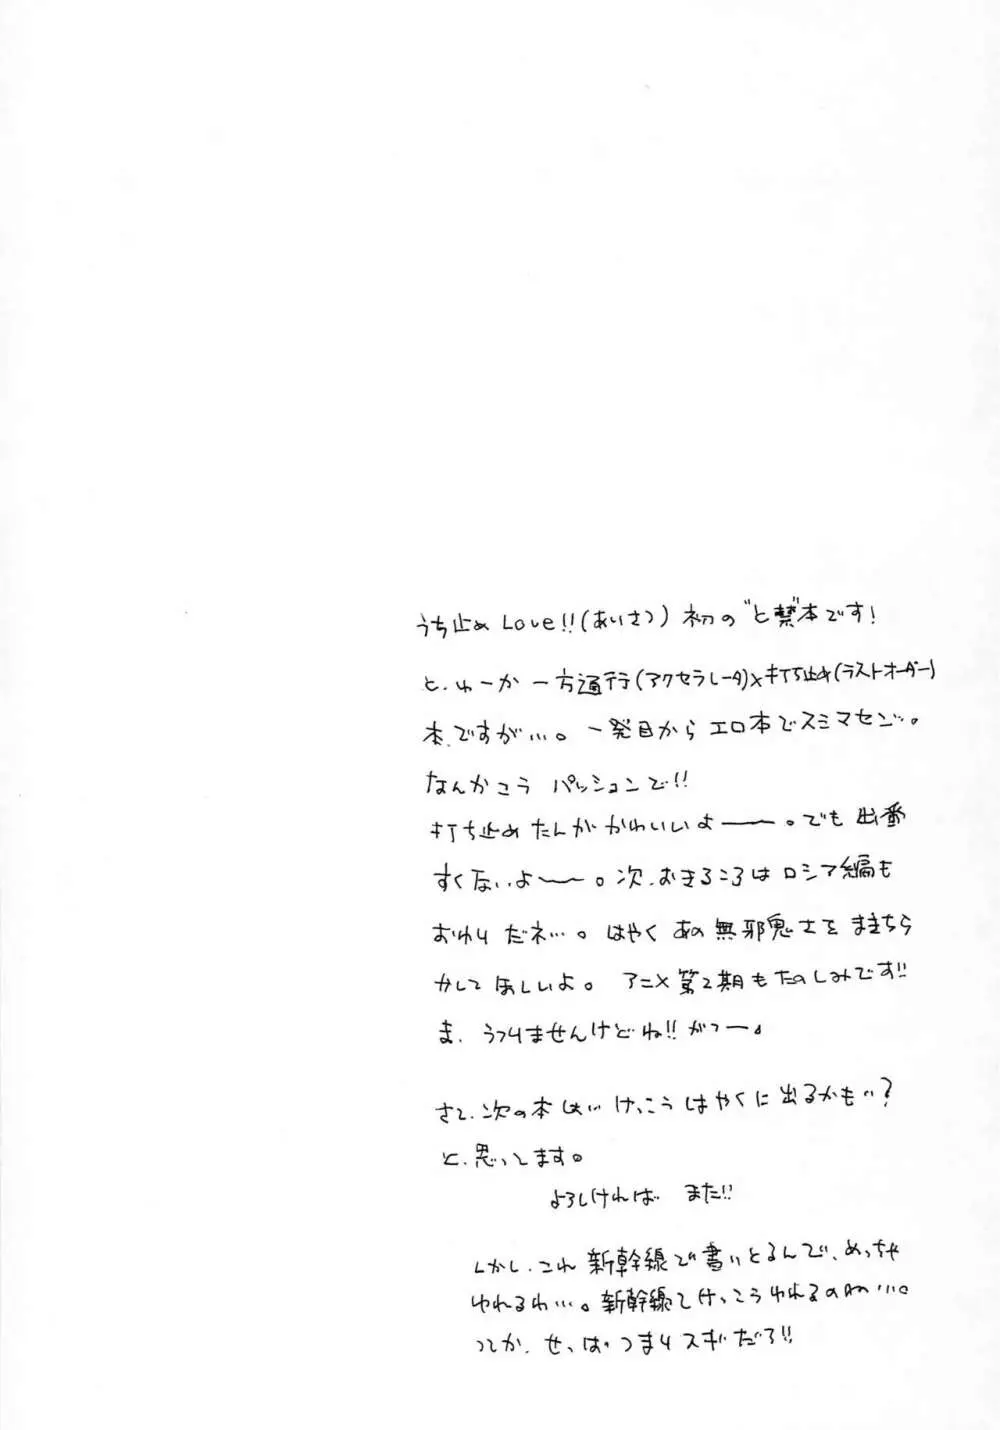 うち止めLove!!(あいさつ) 初の"と禁"本です!
と、ゆーか 一方通行(アクセラレータ)×打ち止め(ラストオーダー)
本、ですが…。一発目からエロ本でスミマセン…。
なんかこう パッションで!!
打ち止めたんがかわいいよ――。でも出番
すくないよ――。次、おきるころはロシア編も
おわりだネ…。はやく あの無邪鬼さを まきちら
かしてほしいよ。アニメ第2期もたのしみです!!
ま、うつりませんけどね!!がつー。
さて、次の本は、けっこうはやくに出るかも…?
と、思ってます。
よろしければ また!!
しかし、これ新幹線で書いとるんで、めっちゃ
ゆれるわ…。新幹線てけっこうゆれるのね…。
ってか、せっぱつまりスギだろ!!